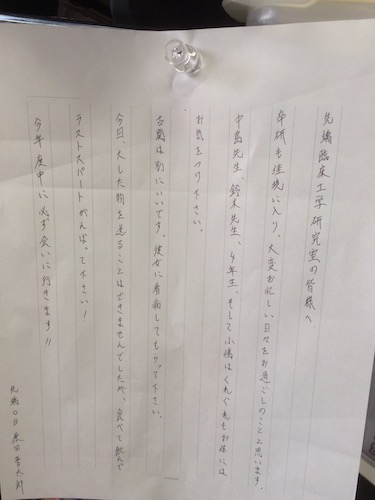 先端臨床工学研究室の皆様へ
卒研も佳境に入り、大変お忙しい日々をお過ごしのことと思います。
中島先生、鈴木先生、4年生、そして小嶋はくれぐれもお体には
お気をつけ下さい。
古閑は別にいいです。彼女に看病してもらって下さい。
今回、大した物を送ることはできませんでしたが、食べて飲んで
ラストスパートがんばって下さい!
今年度中に必ず会いに行きます!!
先端OB 原田